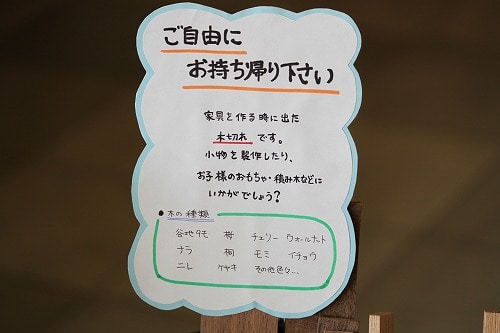 ご自由に
お持ち帰り下さい
家具を作る時に出た
木切れです。
小物を製作したり、
お子様のおもちゃ・積み木などに
いかがでしょう？
●木の種類
谷地タモ 栂 チェリー ウォールナット
ナラ 桐 モミ イチョウ
ニレ ケヤキ その他色々…